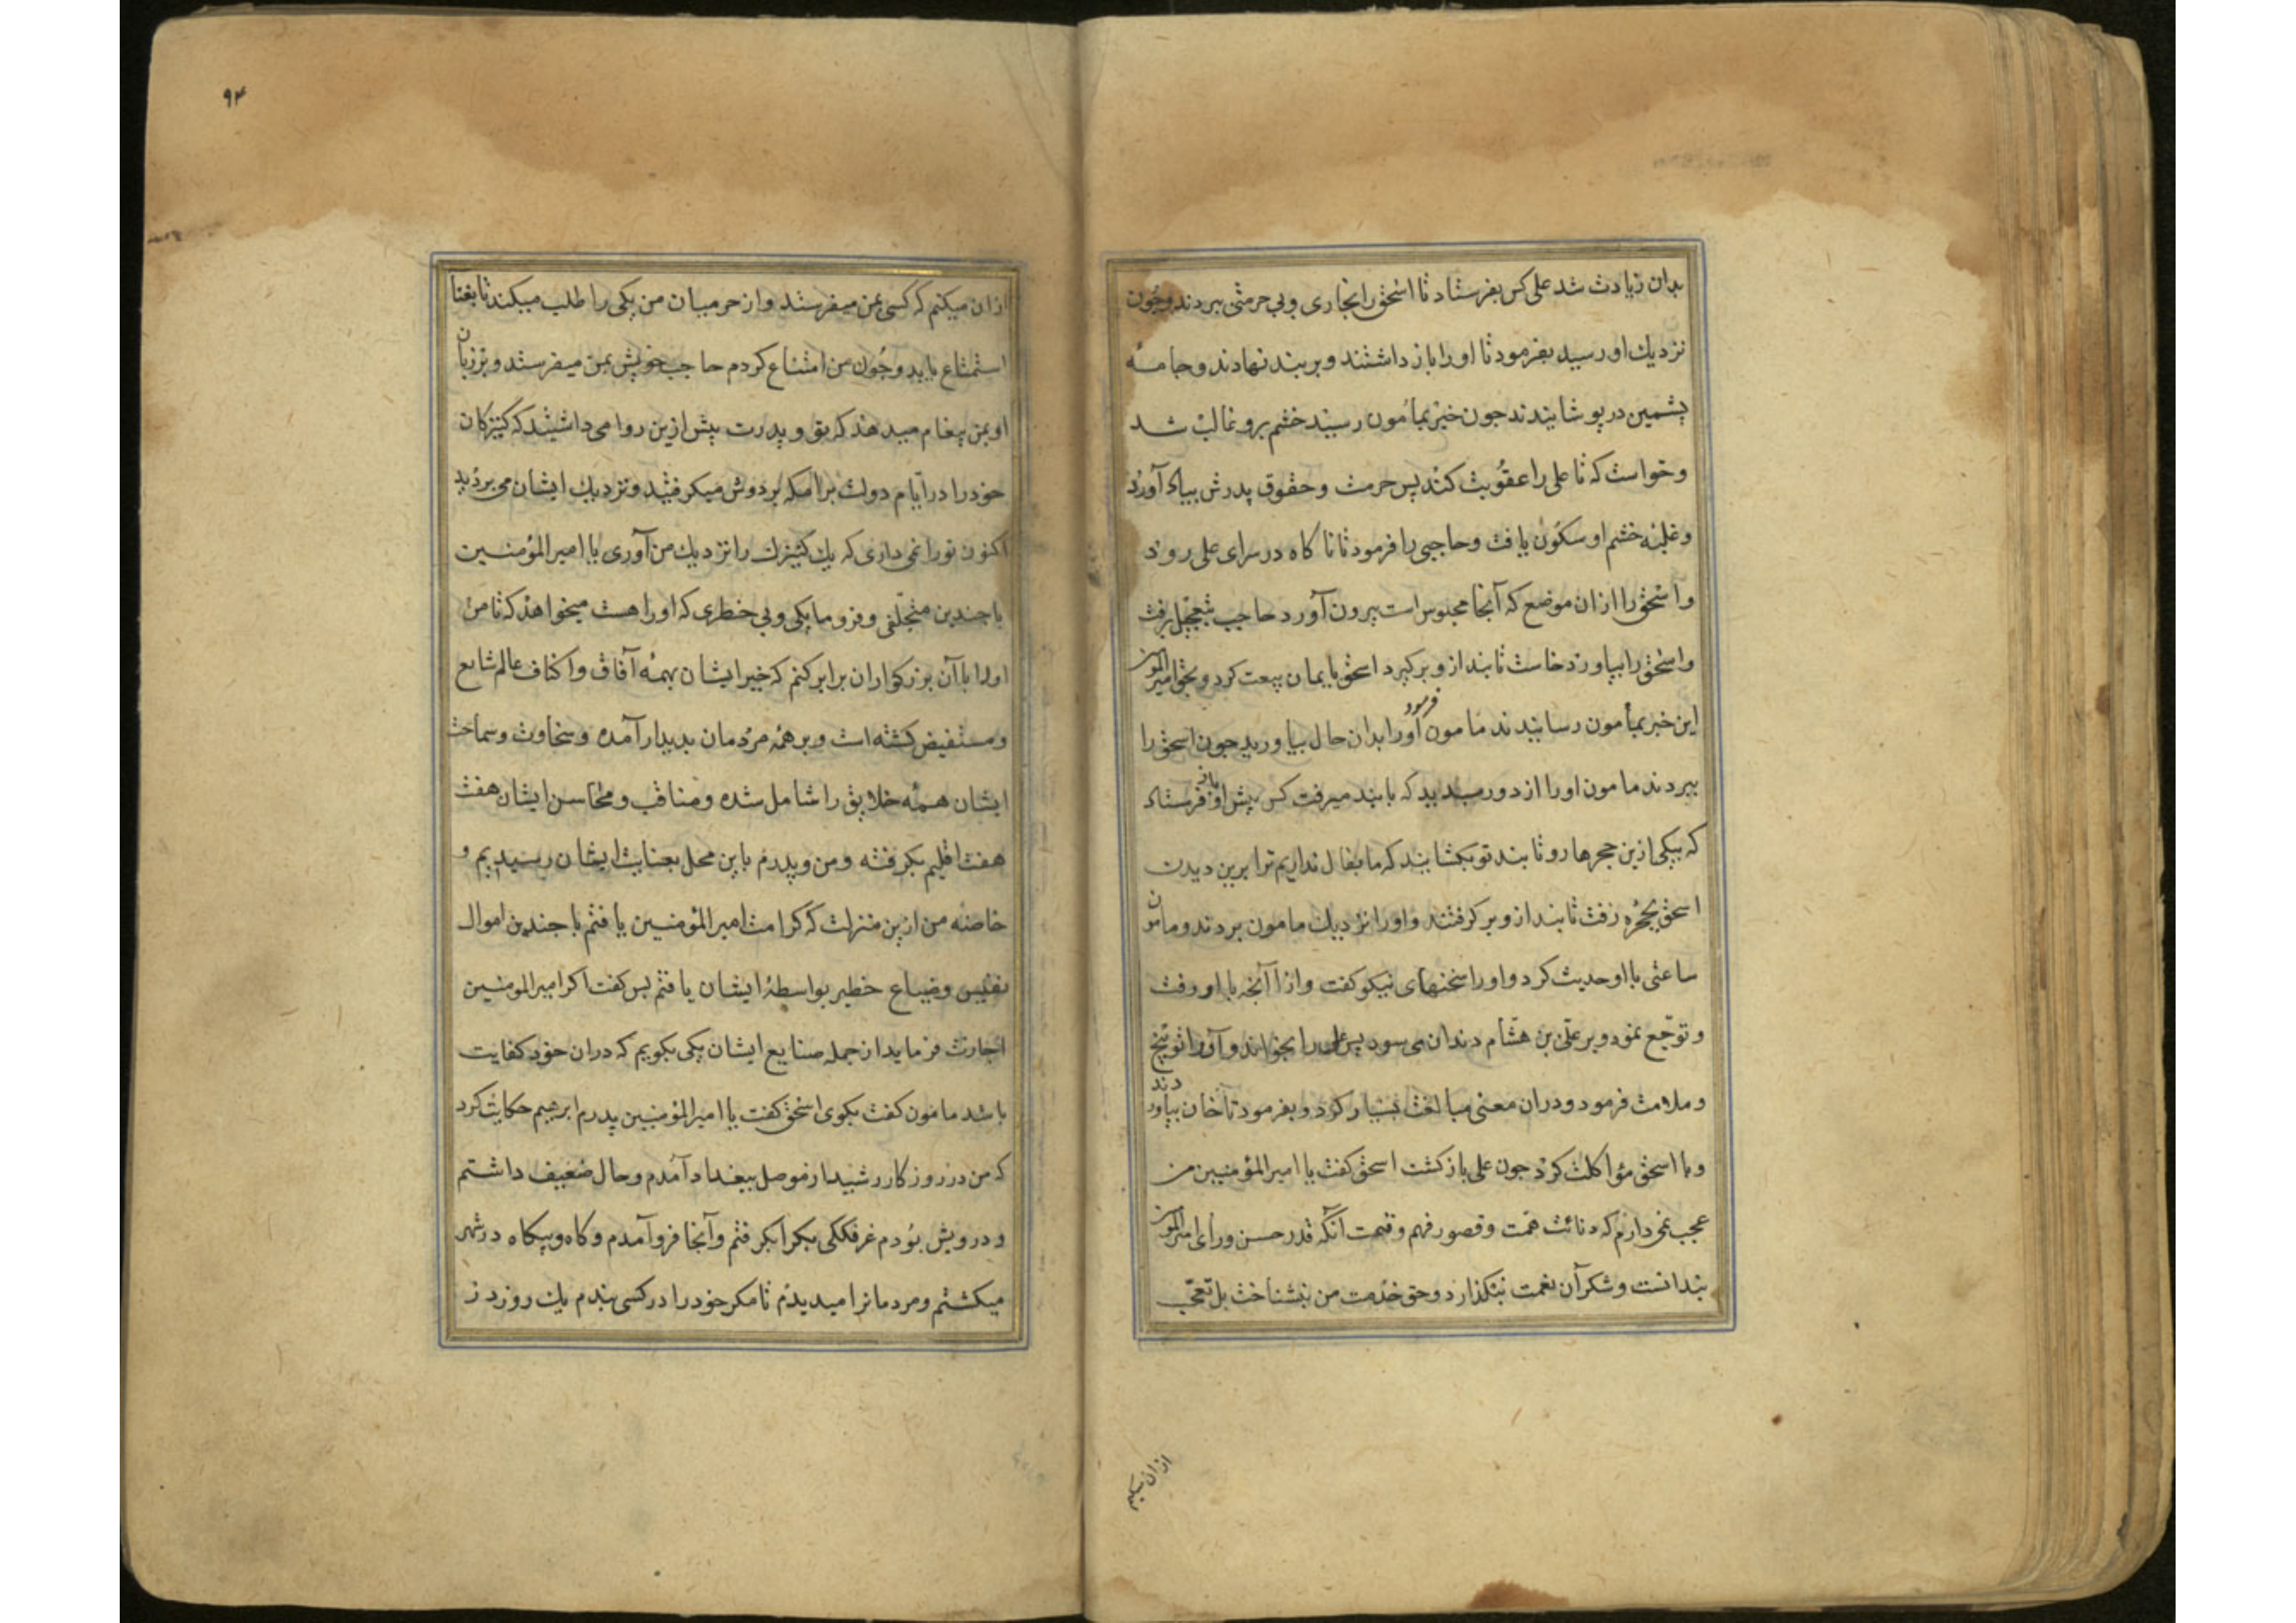 بدان زیادت شد علی کس بفرستاد تا اسحق را بخاری وبی حرمتی ببردند وچون
نزدیك او رسید بفرمود تا اورا باز داشتند وبر بند نهادند وجامهٔ
پشمین در پوشانیدند جون خبر بمأمون رسید خشم برو غالب شد
وخواست که تا علی را عقوبت کند پس حرمت وحقوق پدرش بیاد آورد
وغلبهٔ خشم او سکون یافت وحاجبی را فرمود تا ناکاه در سرای علی رود
واسحق را از ان موضع که آنجا محبوس است بیرون آورد حاجب بتعجیل برفت
واسحق را بیاورد خاست تا بند ازو بر کیرد اسحق بایمان بیعت کرد وبحق امیر المومنین
این خبر بمأمون رسانیدند مامون فرمود اورا بدان حال بیاورید جون اسحق را
ببردند مامون اورا از دور بدید که با بند میرفت کس پیش او باز فرستاد
که بیکی ازین حجرها رو تا بند تو بکشایند که ما بفال نداریم ترا برین دیدن
اسحق بحجره رفت تا بند ازو بر کرفتند واورا نزدیك مامون بردند ومامون
ساعتی با او حدیث کرد واورا سخنهای نیکو کفت وازا آنجه با او رفت
وتوجّع نمود وبر علی بن هشام دندان می سود پس علی را بخواند واورا توبیخ
وملامت فرمود ودران معنی مبالغت بسیار کرد وبفرمود تا خان بیاوردند
وبا اسحق مؤاکلت کرد جون علی باز کشت اسحق کفت یا امیر المؤمنین من
عجب نمی دارم که دنائت همّت وقصور فهم وقیمت آنکه قدر حسن ورأی امیر المومنین
بندانست وشکر آن نعمت بنکذارد وحق خدمت من بنشناخت بل تعجّب
از ان میکنم
۹۴
از ان میکنم که کسی بمن میفرستد واز حرمیان من یکی را طلب میکند تا بغنا
استمتاع یابد وچون من امتناع کردم حاجب خویش بمن میفرستد وبر زبان
او بمن پیغام میدهد که تو و پدرت پیش ازین روا می داشتید که کنیزکان
خود را در ایّام دولت برامکه بر دوش میکرفتید ونزدیك ایشان می بردید
اکنون تو را نمی داری که یك کنیزك را نزدیك من آوری یا امیر المؤمنین
با جندین متجلّفی وفرومایکی وبی خطری که اورا هست میخواهد که تا من
اورا با آن بزرکواران برابر کنم که خبر ایشان بهمهٔ آفاق واکناف عالم شایع
ومستفیض کشته است وبر همهٔ مردمان بدیدار آمده وسخاوت وسماحت
ایشان همهٔ خلایق را شامل شده ومناقب ومحاسن ایشان هفت
هفت اقلیم بکرفته ومن وپدرم باین محل بعنایت ایشان رسیدیم و
خاصه من ازین منزلت که کرامت امیر المؤمنین یافتم با جندین اموال
نفیس وضیاع خطیر بواسطهٔ ایشان یافتم پس کفت اکر امیر المومنین
اجازت فرماید از جمله صنایع ایشان یکی بکویم که دران خود کفایت
باشد مامون کفت بکوی اسحق کفت یا امیر المؤمنین پدرم ابرهیم حکایت کرد
که من در روزکار رشید از موصل ببغداد آمدم وحال ضعیف داشتم
ودرویش بودم غرفککی بکرا بکرفتم وآنجا فرو آمدم وکاه وبیکاه در شهر
میکشتم ومردمانرا میدیدم تا مکر خود را در کسی بندم یك روز در